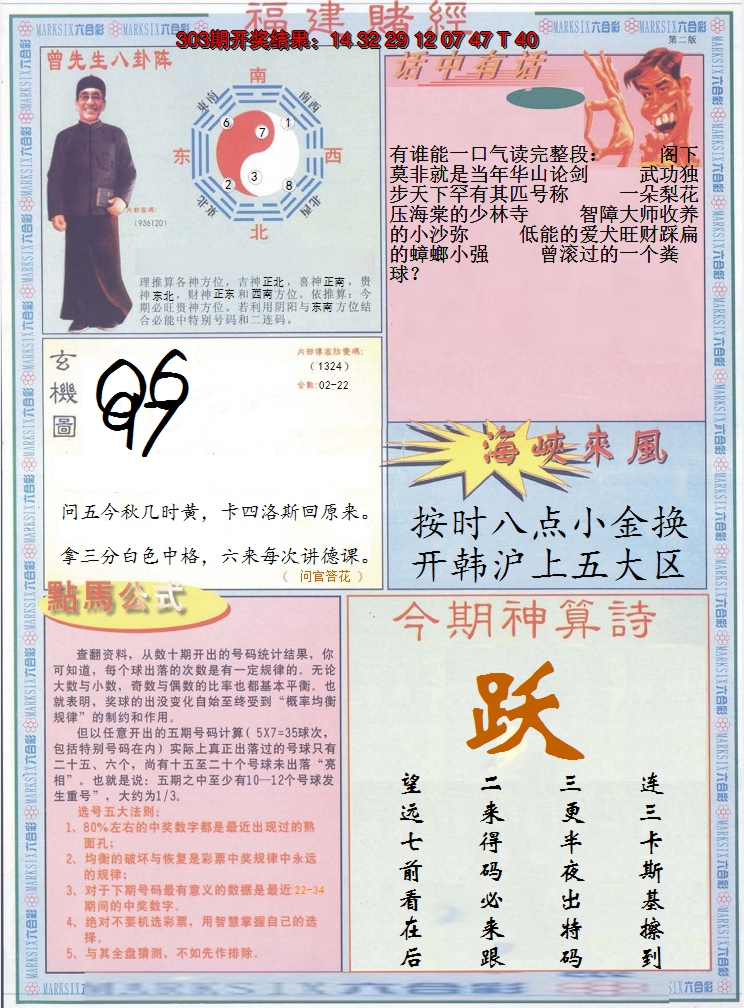 福建賭經
MARKSIX六合彩
第二版
303期开奖结果：14 32 29 12 07 47 T 40
曾先生八卦阵
南
东南
西南
东
西
东北
西北
北
6
7
1
2
3
8
内部密碼:
(936120)
理推算各神方位，吉神正北，喜神正南，贵
神东北，财神正东和西南方位。依推算：今
期必旺贵神方位。若利用阴阳与东南方位结
合必能中特别号码和二连码。
话中有话
有谁能一口气读完整段： 阁下
莫非就是当年华山论剑 武功独
步天下罕有其匹号称 一朵梨花
压海棠的少林寺 智障大师收养
的小沙弥 低能的爱犬旺财踩扁
的蟑螂小强 曾滚过的一个粪
球？
玄機圖
内部傳密防變碼:
(1324)
合數:02-22
问五今秋几时黄，卡四洛斯回原来。
拿三分白色中格，六来每次讲德课。
（ 问官答花 ）
海峽來風
按时八点小金换
开韩沪上五大区
點馬公式
查翻资料，从数十期开出的号码统计结果，你
可知道，每个球出落的次数是有一定规律的。无论
大数与小数，奇数与偶数的比率也都基本平衡。也
就表明，奖球的出没变化自始至终受到“概率均衡
规律”的制约和作用。
但以任意开出的五期号码计算( 5X7=35球次，
包括特别号码在内) 实际上真正出落过的号球只有
二十五、六个，尚有十五至二十个号球未出落“亮
相”。也就是说：五期之中至少有10—12个号球发
生重号”，大约为1/3。
选号五大法则：
1、80%左右的中奖数字都是最近出现过的熟
面孔；
2、均衡的破坏与恢复是彩票中奖规律中永远
的规律；
3、对于下期号码最有意义的数据是最近22-34
期间的中奖数字。
4、绝对不要机选彩票，用智慧掌握自己的选
择。
5、与其全盘猜测，不如先作排除。
今期神算詩
跃
望远七前看在后
二来得码必来跟
三更半夜出特码
连三卡斯基擦到